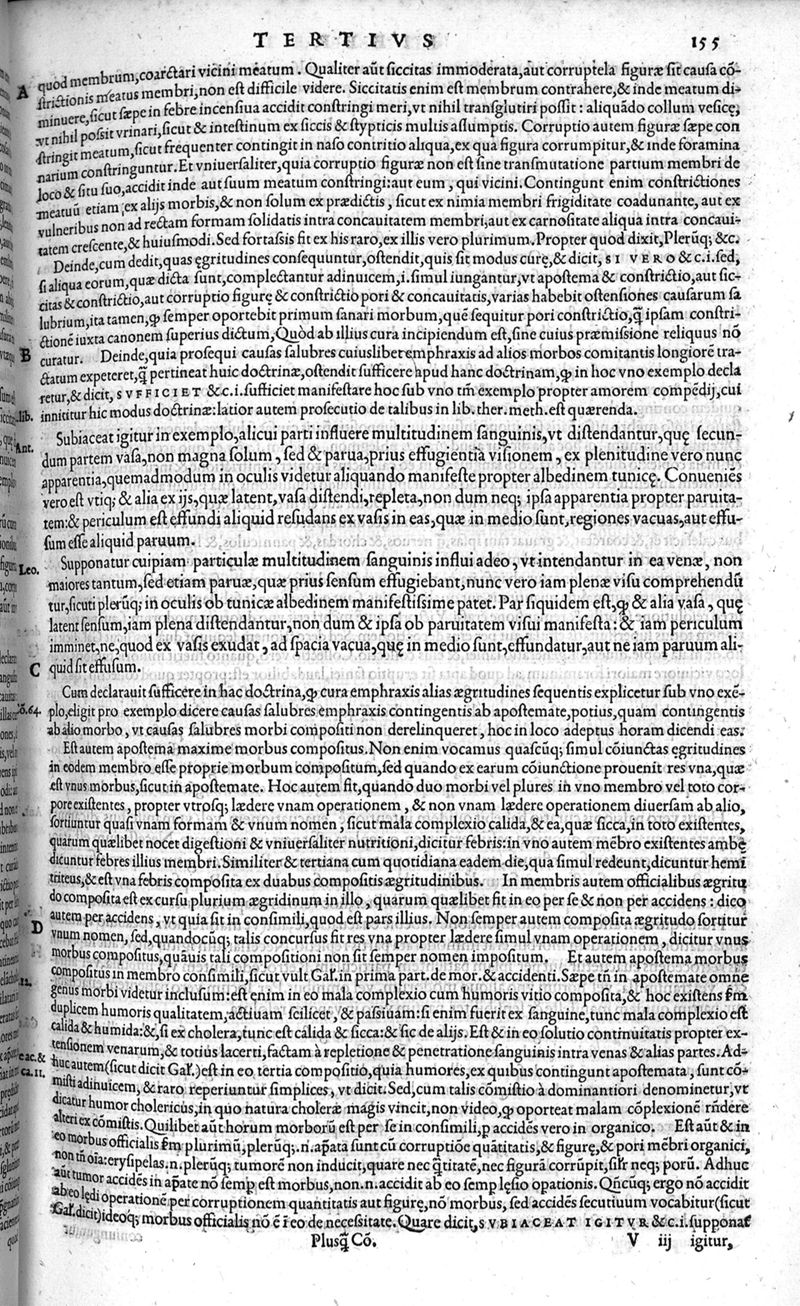 TERTIVS 155
A quod membrum, coarctari vicini meatum. Qualiter aūt siccitas immoderata, aut corruptela figuræ sit causa cō-
strictionis meatus membri, non est difficile videre. Siccitatis enim est membrum contrahere, & inde meatum di-
minuere, sicut sæpe in febre incensiua accidit constringi meri, vt nihil transglutiri possit: aliquādo collum vesicę,
vt nihil possit vrinari, sicut & intestinum ex siccis & stypticis multis assumptis. Corruptio autem figuræ sæpe con
stringit meatum, sicut frequenter contingit in naso contritio aliqua, ex qua figura corrumpitur, & inde foramina
narium constringuntur. Et vniuersaliter, quia corruptio figuræ non est sine transmutatione partium membri de
loco & situ suo, accidit inde aut suum meatum constringi: aut eum, qui vicini. Contingunt enim constrictiones
meatuū etiam ex alijs morbis, & non solum ex prædictis, sicut ex nimia membri frigiditate coadunante, aut ex
vulneribus non ad rectam formam solidatis intra concauitatem membri, aut ex carnositate aliqua intra concaui-
tatem crescente, & huiusmodi. Sed fortassis fit ex his raro, ex illis vero plurimum. Propter quod dixit, Plerūq; &c.
Deinde, cum dedit, quas ęgritudines consequuntur, ostendit, quis sit modus curę, & dicit, SI VERO &c. i. sed,
si aliqua eorum, quæ dicta sunt, complectantur adinuicem, i. simul iungantur, vt apostema & constrictio, aut sic-
citas & constrictio, aut corruptio figurę & constrictio pori & concauitatis, varias habebit ostensiones causarum sa
lubrium, ita tamen, ꝙ semper oportebit primum sanari morbum, quē sequitur pori constrictio, q̄ ipsam constri-
ctionē iuxta canonem superius dictum, Quòd ab illius cura incipiendum est, sine cuius præmissione reliquus nō
B curatur. Deinde, quia prosequi causas salubres cuiuslibet emphraxis ad alios morbos comitantis longiorē tra-
ctatum expeteret, q̄ pertineat huic doctrinæ, ostendit sufficere apud hanc doctrinam, ꝙ in hoc vno exemplo decla
retur, & dicit, SVFFICIET &c. i. sufficiet manifestare hoc sub vno tm̄ exemplo propter amorem compēdij, cui
lib. innititur hic modus doctrinæ: latior autem prosecutio de talibus in lib. ther. meth. est quærenda.
Ant. Subiaceat igitur in exemplo, alicui parti influere multitudinem sanguinis, vt distendantur, quę secun-
dum partem vasa, non magna solum, sed & parua, prius effugientia visionem, ex plenitudine vero nunc
apparentia, quemadmodum in oculis videtur aliquando manifeste propter albedinem tunicę. Conueniēs
vero est vtiq; & alia ex ijs, quæ latent, vasa distendi, repleta, non dum neq; ipsa apparentia propter paruita-
tem: & periculum est effundi aliquid resudans ex vasis in eas, quæ in medio sunt, regiones vacuas, aut effu-
sum esse aliquid paruum.
Leo. Supponatur cuipiam particulæ multitudinem sanguinis influi adeo, vt intendantur in ea venæ, non
maiores tantum, sed etiam paruæ, quæ prius sensum effugiebant, nunc vero iam plenæ visu comprehendū
tur, sicuti plerūq; in oculis ob tunicæ albedinem manifestissime patet. Par siquidem est, ꝙ & alia vasa, quę
latent sensum, iam plena distendantur, non dum & ipsa ob paruitatem visui manifesta: & iam periculum
imminet, ne, quod ex vasis exudat, ad spacia vacua, quę in medio sunt, effundatur, aut ne iam paruum ali-
C quid sit effusum.
Cum declarauit sufficere in hac doctrina, ꝙ cura emphraxis alias ægritudines sequentis explicetur sub vno exē-
plo, eligit pro exemplo dicere causas salubres emphraxis contingentis ab apostemate, potius, quam contingentis
ab alio morbo, vt causas salubres morbi compositi non derelinqueret, hoc in loco adeptus horam dicendi eas.
Est autem apostema maxime morbus compositus. Non enim vocamus quascūq; simul cōiunctas ęgritudines
in eodem membro esse proprie morbum compositum, sed quando ex earum cōiunctione prouenit res vna, quæ
est vnus morbus, sicut in apostemate. Hoc autem fit, quando duo morbi vel plures in vno membro vel toto cor-
pore existentes, propter vtrosq; lædere vnam operationem, & non vnam lædere operationem diuersam ab alio,
sortiuntur quasi vnam formam & vnum nomen, sicut mala complexio calida, & ea, quæ sicca, in toto existentes,
quarum quælibet nocet digestioni & vniuersaliter nutritioni, dicitur febris: in vno autem mēbro existentes ambę
dicuntur febres illius membri. Similiter & tertiana cum quotidiana eadem die, qua simul redeunt, dicuntur hemi
triteus, & est vna febris composita ex duabus compositis ægritudinibus. In membris autem officialibus ægritu
do composita est ex cursu plurium ægridinum in illo, quarum quælibet fit in eo per se & non per accidens: dico
D autem per accidens, vt quia sit in consimili, quod est pars illius. Non semper autem composita ægritudo sortitur
vnum nomen, sed, quandocūq; talis concursus fit res vna propter lædere simul vnam operationem, dicitur vnus
morbus compositus, quāuis tali compositioni non sit semper nomen impositum. Et autem apostema morbus
compositus in membro consimili, sicut vult Gal. in prima part. de mor. & accidenti. Sæpe tn̄ in apostemate omne
genus morbi videtur inclusum: est enim in eo mala complexio cum humoris vitio composita, & hoc existens s̄m
duplicem humoris qualitatem, actiuam scilicet, & passiuam: si enim fuerit ex sanguine, tunc mala complexio est
calida & humida: &, si ex cholera, tunc est cálida & sicca: & sic de alijs. Est & in eo solutio continuitatis propter ex-
tensionem venarum, & totius lacerti, factam à repletione & penetratione sanguinis intra venas & alias partes. Ad-
huc autem (sicut dicit Gal.) est in eo tertia compositio, quia humores, ex quibus contingunt apostemata, sunt cō-
misti adinuicem, & raro reperiuntur simplices, vt dicit. Sed, cum talis cōmistio à dominantiori denominetur, vt
dicatur humor cholericus, in quo natura choleræ magis vincit, non video, ꝙ oporteat malam cōplexionē rn̄dere
alteri ex cōmistis. Quilibet aūt horum morborū est per se in consimili, ꝑ accidēs vero in organico. Est aūt & in
eo morbus officialis s̄m plurimū, plerūq; .n. apāta sunt cū corruptiōe quātitatis, & figurę, & pori mēbri organici,
non tn̄ oīa: erysipelas .n. plerūq; tumorē non inducit, quare nec q̄titatē, nec figurā corrūpit, sil'r neq; porū. Adhuc
aūt tumor accidēs in apāte nō semꝑ est morbus, non .n. accidit ab eo semꝑ lęsio oꝑationis. Qn̄cūq; ergo nō accidit
ab eo lędi operationē per corruptionem quantitatis aut figurę, nō morbus, sed accidēs secutiuum vocabitur (sicut
Gal. dicit) ideoq; morbus officialis nō ē ī eo de necessitate. Quare dicit, SVBIACEAT IGITVR &c. i. supponat
Plusq̄ Cō. V iij igitur,